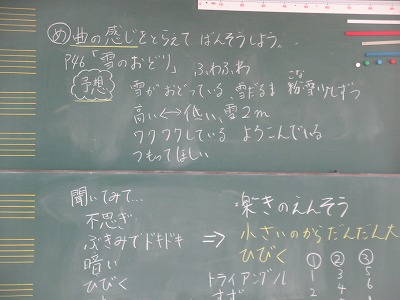 め 曲の感じをとらえて ばんそうしよう。
P46「雪のおどり」 ふわふわ
予想 雪がおどっている、雪だるま 粉雪少しずつ
こな
高い↔低い、雪2m
ワクワクしている よろこんでいる
つもってほしい
聞いてみて…
不思ぎ
ぶきみでドキドキ
暗い
ひびく
⇒ 楽きのえんそう
小さいのからだんだん大
ひびく
① ② ③
トライアングル 1 3 5
すず 2 4 6